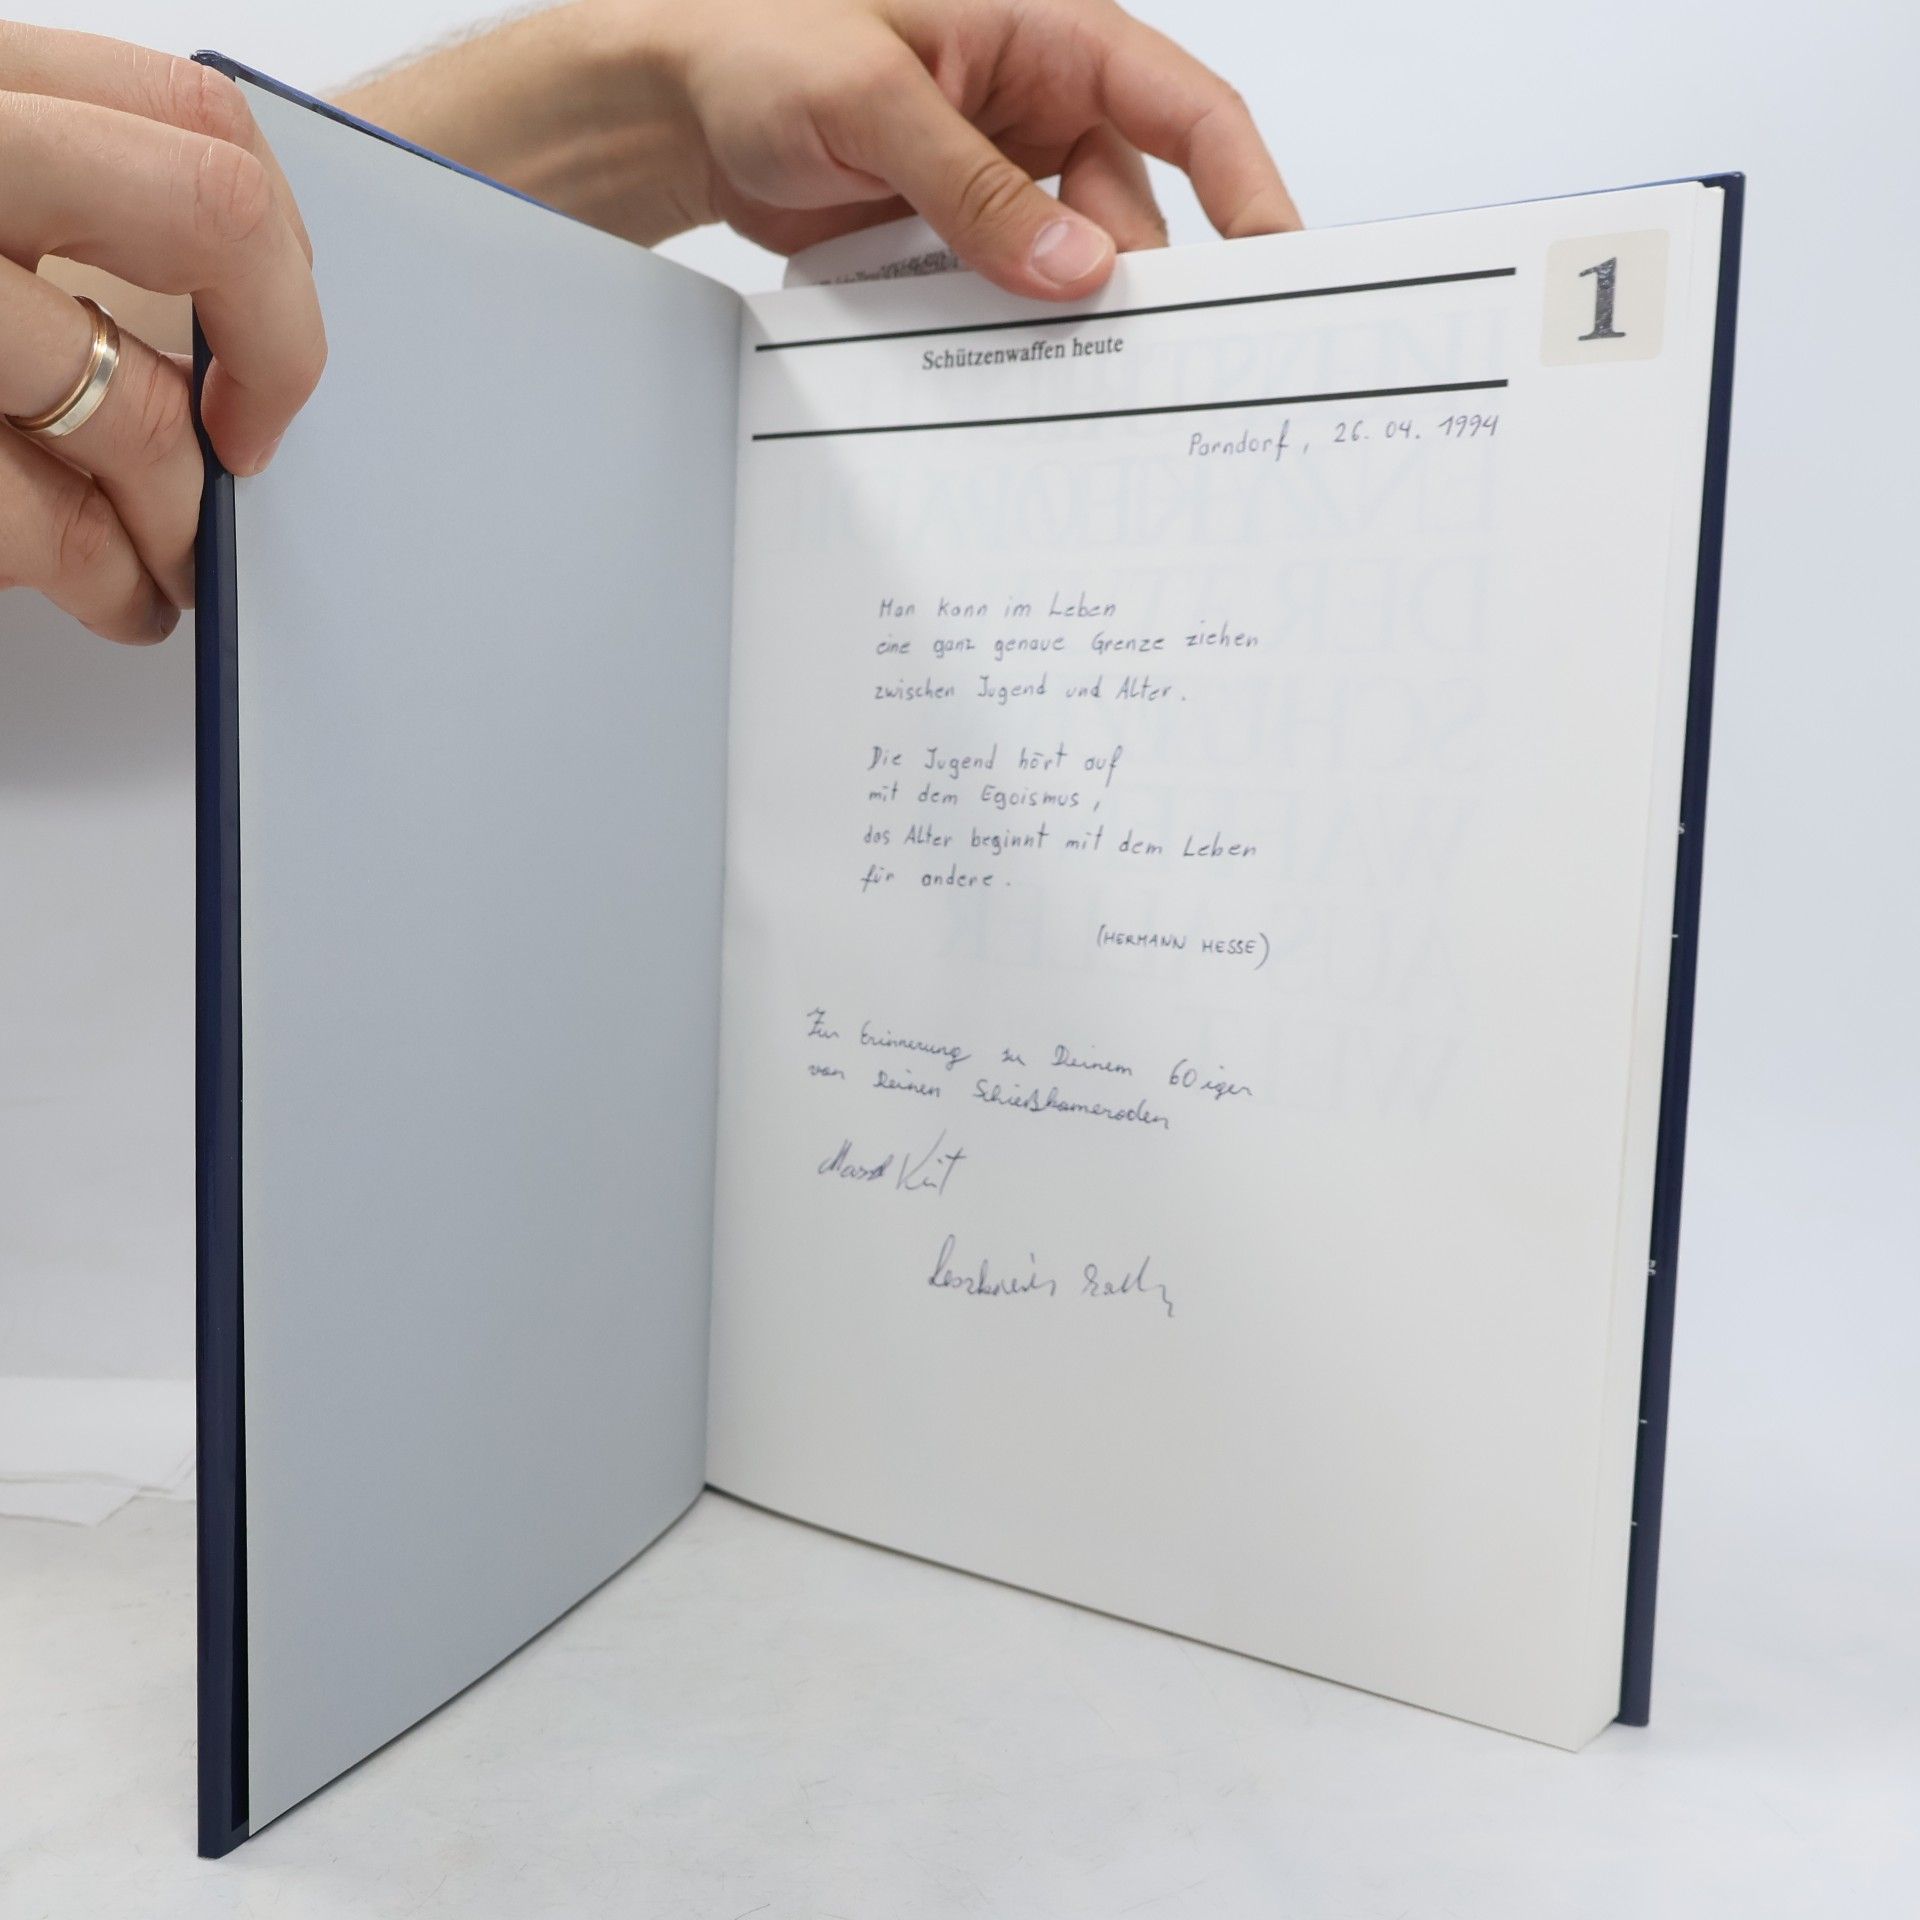 Schützenwaffen heute
1
Parndorf, 26. 04. 1994
Man kann im Leben
eine ganz genaue Grenze ziehen
zwischen Jugend und Alter.
Die Jugend hört auf
mit dem Egoismus,
das Alter beginnt mit dem Leben
für andere.
(HERMANN HESSE)
Zur Erinnerung zu Deinem 60iger
von Deinen Schießkameraden